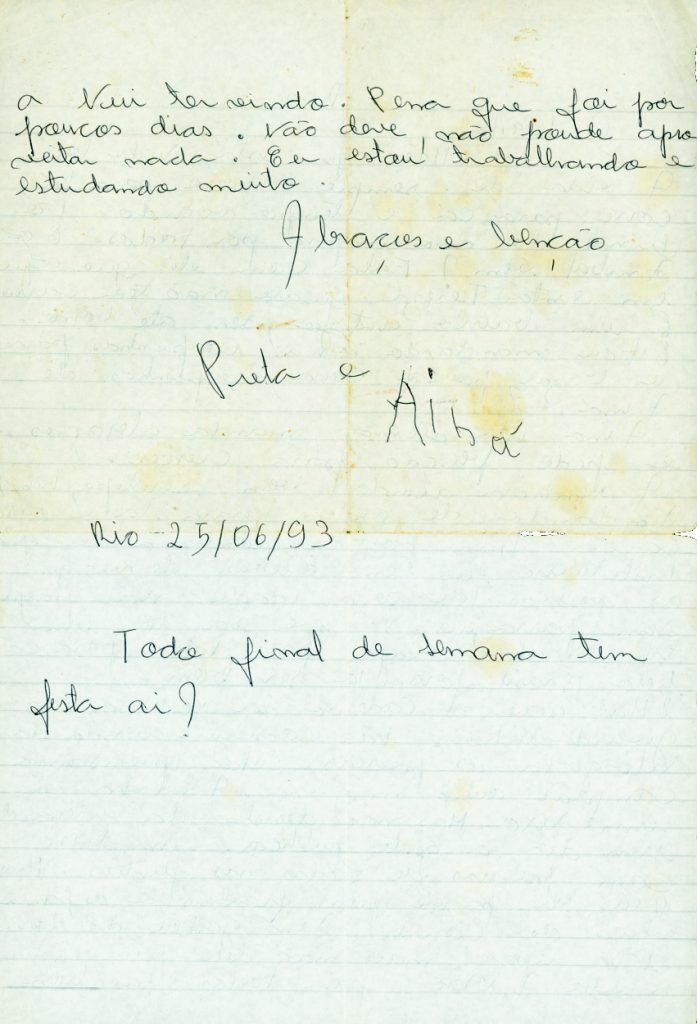 a Nei ter vindo. Pena que foi por
poucos dias. Não deve, não poude apro
veitar nada. Eu estou trabalhando e
estudando muito.
Abraços e benção
Preta e
Aihá
Rio 25/06/93
Todo final de semana tem
festa ai?